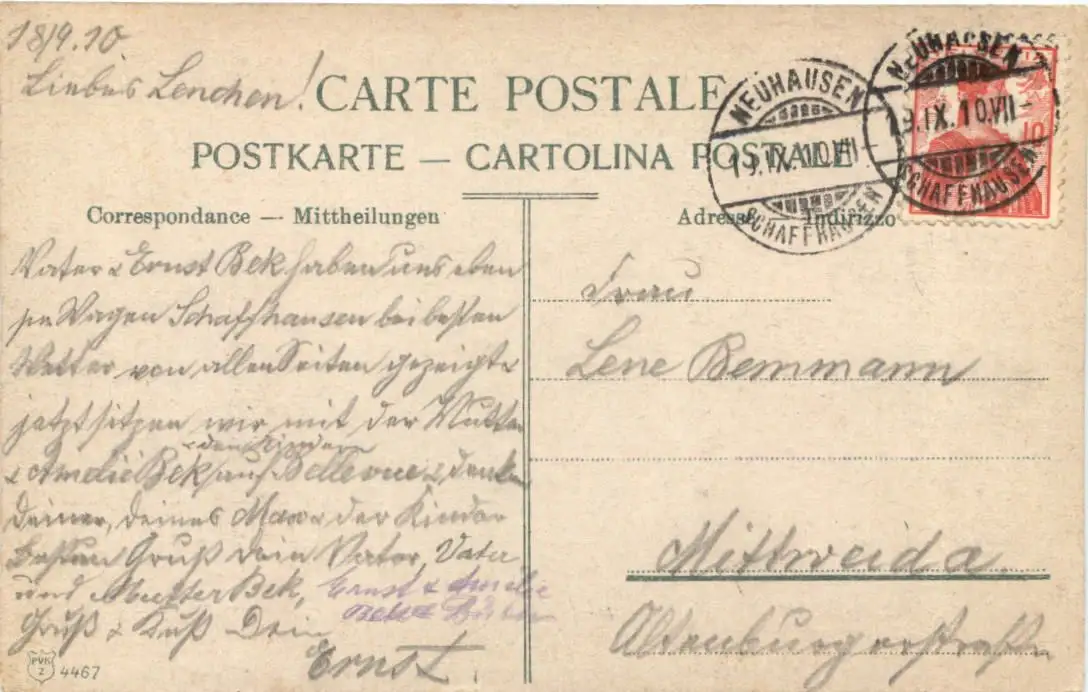 18/9.10
Liebes Lenchen!
CARTE POSTALE
POSTKARTE — CARTOLINA POSTALE
Correspondance — Mittheilungen
Adresse Indirizzo
NEUHAUSEN
19.IX.10.VII-
SCHAFFHAUSEN
NEUHAUSEN
19.IX.10.VII-
SCHAFFHAUSEN
10
Vater & Ernst Bek haben uns eben
per Wagen Schaffhausen bei besten
Wetter von allen Seiten gezeigt &
jetzt sitzen wir mit der Mutter
& den Kindern
& Amelie Bek auf Bellevue & denken
Deiner, Deines Max & der Kinder
Besten Gruß Dein Vater, Vater
und Mutter Bek, Ernst & Amelie
Gruß & Kuß Dein
Ernst
Frau
Lene Bemmann
Mittweida
Altenburgerstraße
PVK
Z
4467